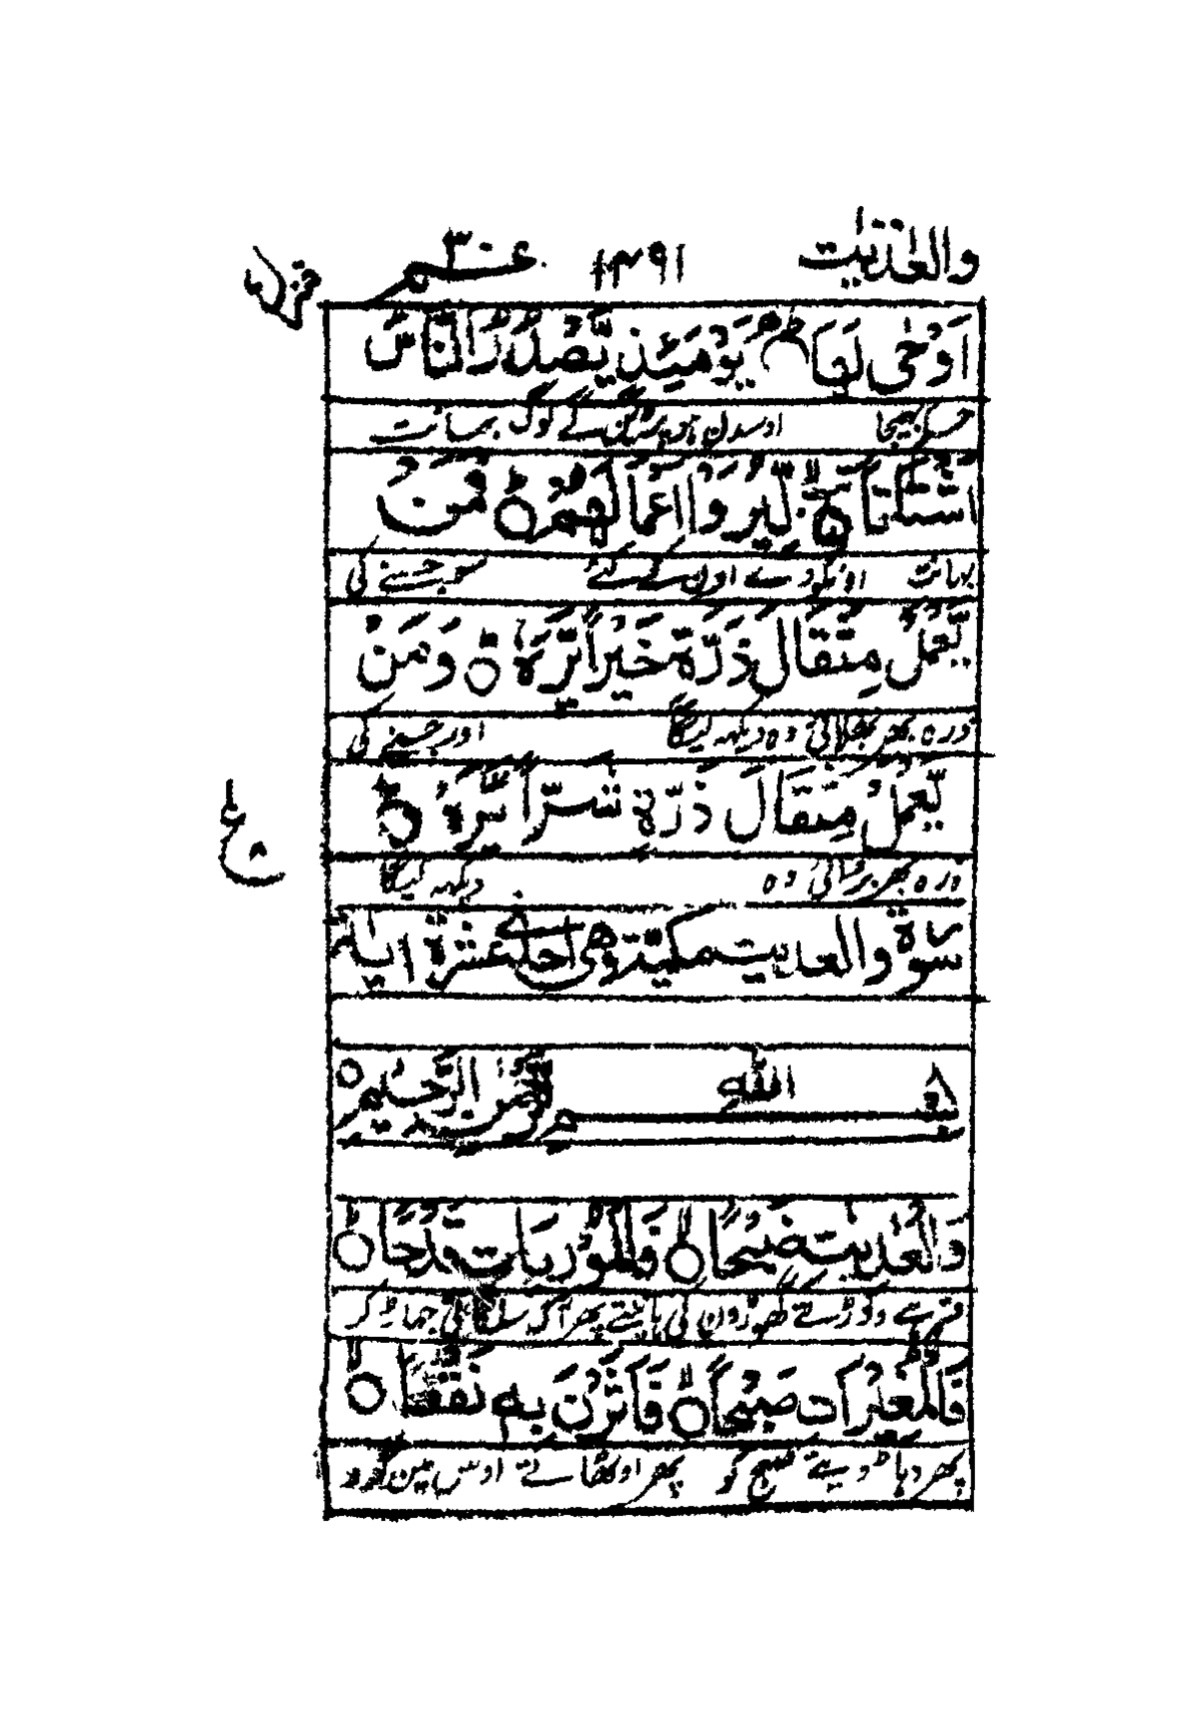 والعٰدیٰت ۱۳۹۱ عم ۳۰ منزل ۷
اَوْحٰى لَهَا ؕ يَوْمَئِذٍ يَّصْدُرُ النَّاسُ
حکم بھیجا اوسدن ہو پڑینگے لوگ بھانت
اَشْتَاتًا ۙ۬ لِّيُرَوْا اَعْمَالَهُمْ ؕ فَمَنْ
بھانت اونکو دسے اون کے کئے سو جسنے کی
يَّعْمَلْ مِثْقَالَ ذَرَّةٍ خَيْرًا يَّرَهٗ ؕ وَمَنْ
ذرہ بھر بھلائی وہ دیکھہ لیگا اور جسنے کی
يَّعْمَلْ مِثْقَالَ ذَرَّةٍ شَرًّا يَّرَهٗ
ذرہ بھر برائی وہ دیکھہ لیگا
ع ۸
سورة والعديت مكية وهي احدى عشرة اية
بسم الله الرحمن الرحيم
وَالْعٰدِيٰتِ ضَبْحًا ۙ فَالْمُوْرِيَاتِ قَدْحًا ۙ
قسم ہے دوڑتے گھوڑون کی ہانپتے پھر آگ سلگاتی جھاڑ کر
فَالْمُغِيْرَاتِ صُبْحًا ۙ فَاَثَرْنَ بِهٖ نَقْعًا ۙ
پھر دہاڑ دیتے صبح کو پھر اوٹھاتے اوس مین گرد